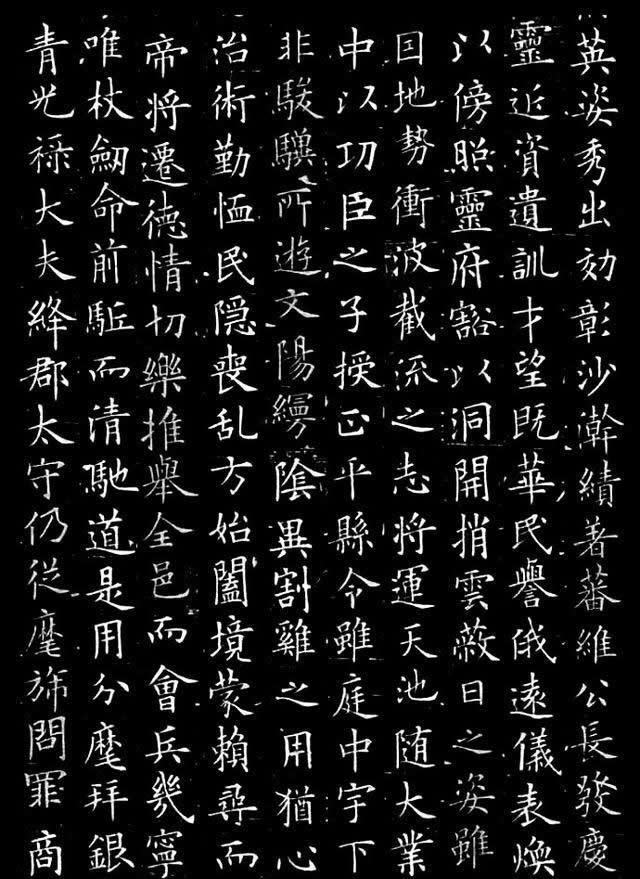 英姿秀出効彰沙澣績著蕃維公長發慶
靈近資遺訓才望既華民譽俄遠儀表煥
以傍照靈府豁以洞開捎雲蔽日之姿雖
囙地勢衝波截流之志將運天池随大業
中以功臣之子授正平縣令雖庭中宇下
非駿驥所遊文陽縵陰異割雞之用猶心
治術勤恤民隠喪乱方始闔境蒙賴尋而
帝將遷德情切樂推舉全邑而會兵幾寧
唯杖劔命前駈而清馳道是用分麾拜銀
青光祿大夫絳郡太守仍従麾旆問罪商